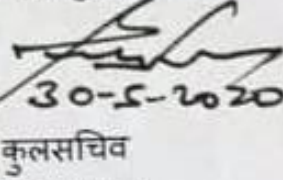 30-5-2020
कुलसचिव